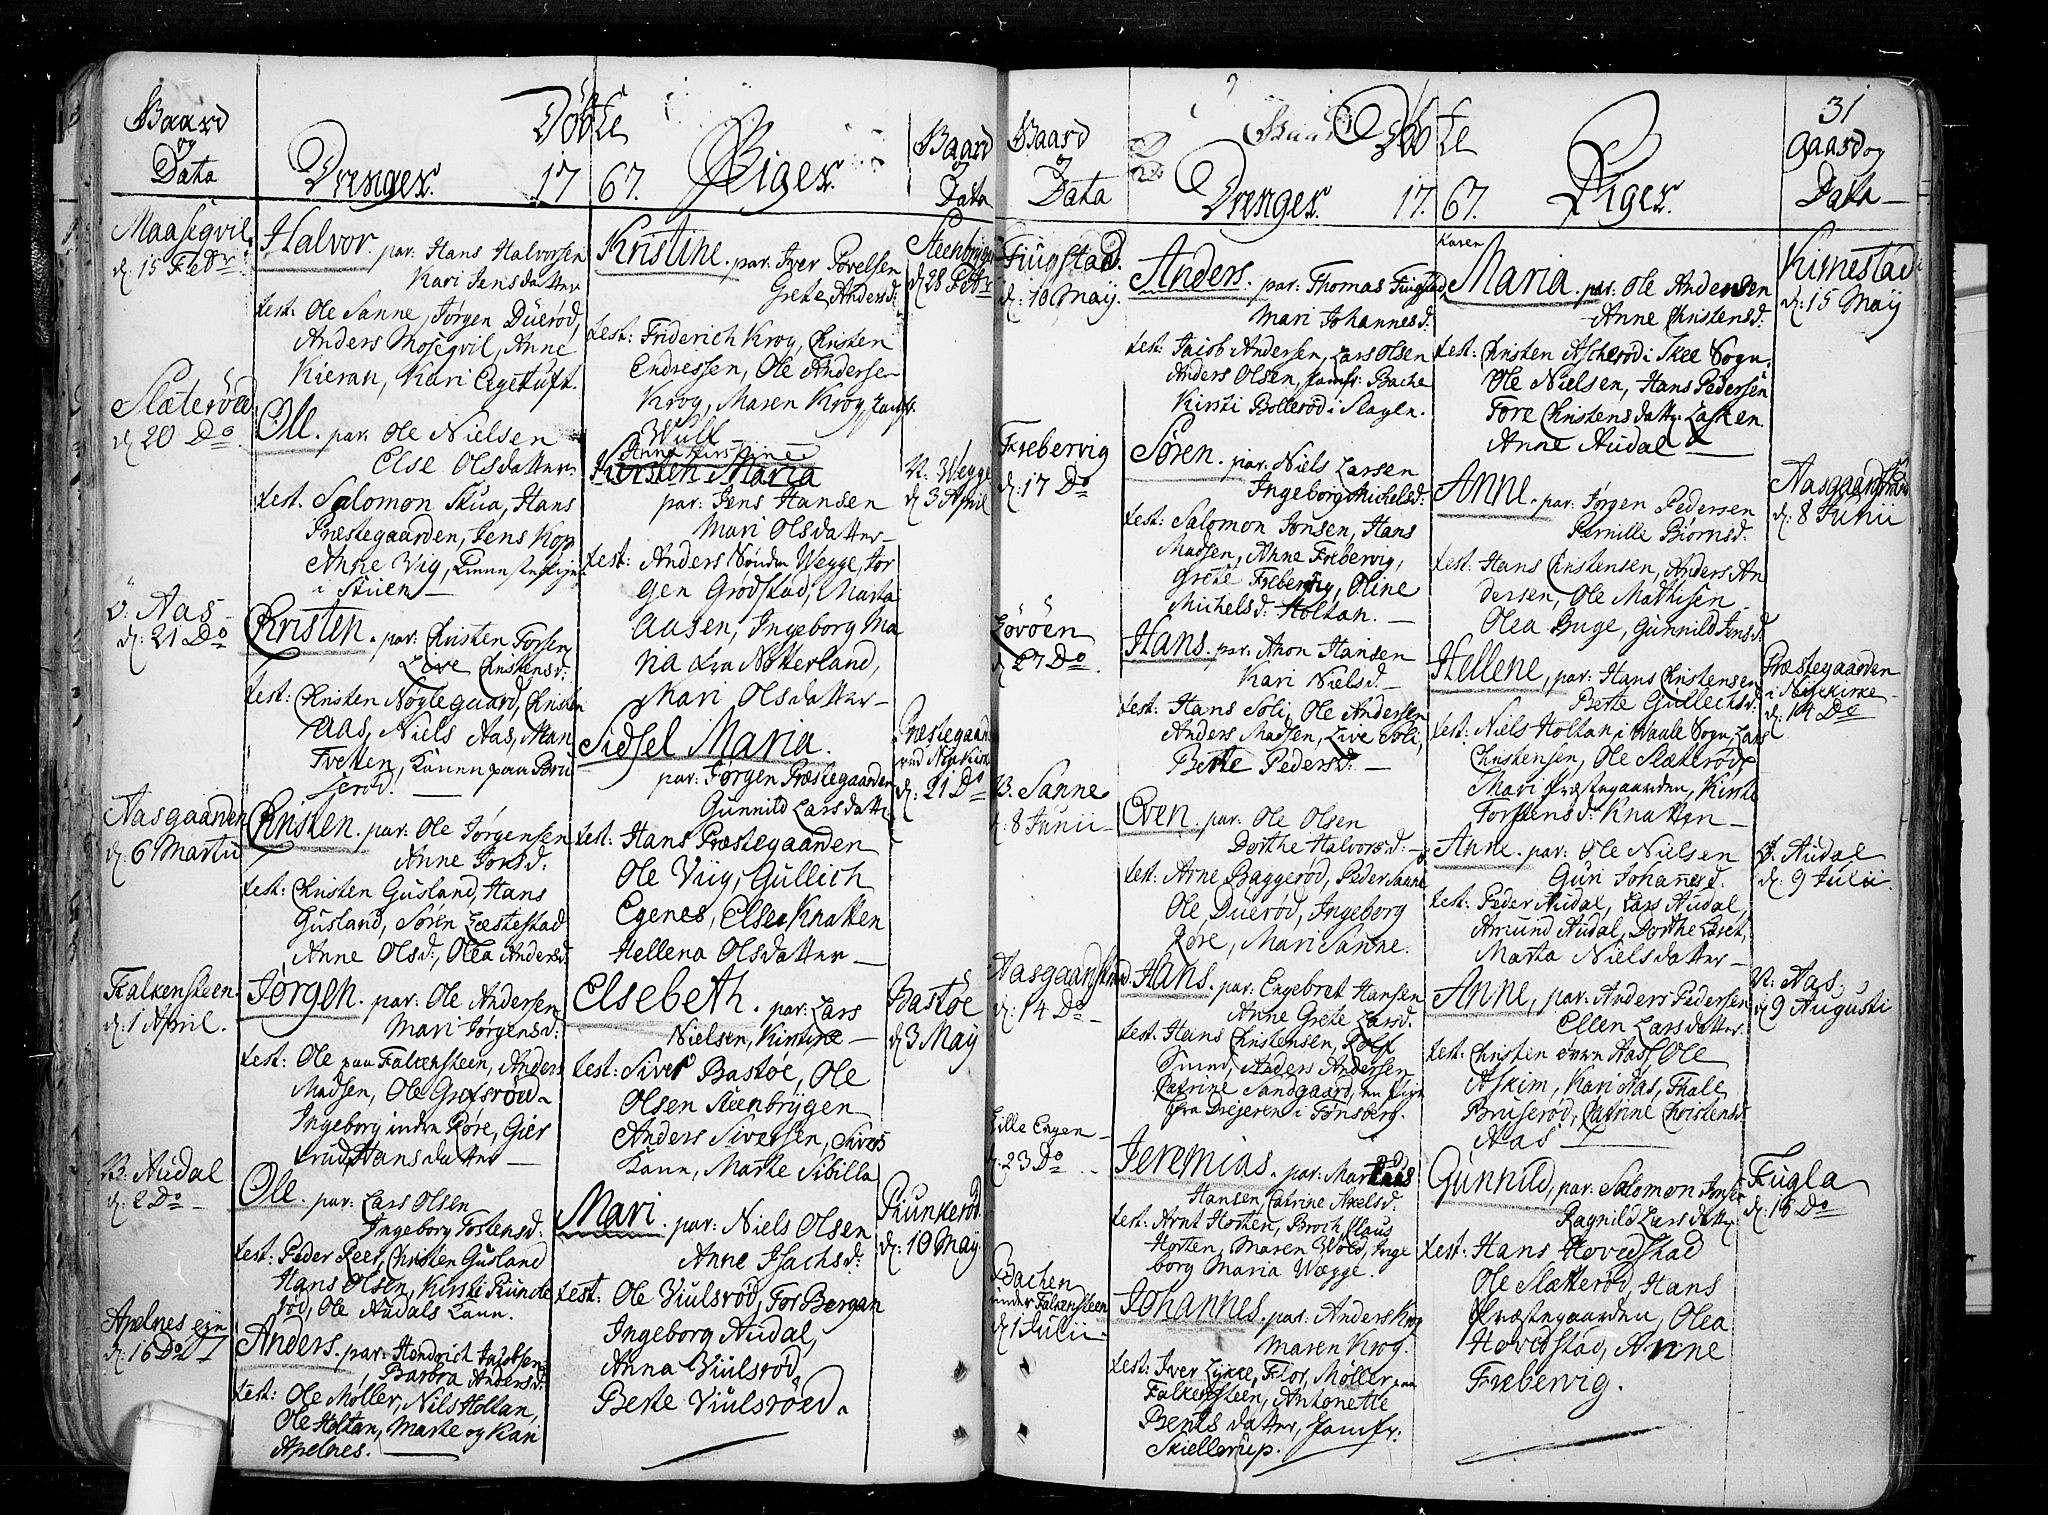 Gaard
og
Data
Døbte
Drenger. 17 67. Piger.
Gaard
og
Data
Maasegvil
d. 15 Febr
Halvor. par. Hans Halvorsen
Kari Jensdatter
test: Ole Sanne, Jørgen Düerød,
Anders Mosegvil, Anne
Kieran, Kari Egetuft.
Slateröed
d. 20 Do
Oll. par. Ole Nielsen
Else Olsdatter
test. Salomon Skua, Hans
Præstegaarden, Jens Kop
Anne Vig,
i Stüen
Ö. Aas
d. 21 Do
Kristen. par: Christen Torsen
Live Christensd:
test: Christen Nøglegaard, Christen
Aas, Niels Aas, Man
Tvetten, Konen paa Bru
serød.
Aasgaarden
d. 6 Martii
Kristen. par: Ole Jørgensen
Anne Jonsd.
test: Christen Gusland, Hans
Gusland, Søren Læstestad
Anne Olsd:, Olea Andersd.
Falkensteen.
d. 1 April.
Jørgen. par: Ole Andersen
Mari Jørgensd:
test: Ole paa Falkensteen, Anders
Madsen, Ole Grefsrød
Ingeborg indre Røre, Gier
trud Hansdatter
N. Audal
d. 2 Do
Oll. par: Lars Olsen
Ingeborg Tostensd:
test: Peder Reer, Christen Gusland
Hans Olsen, Kirsti Runde
rød, Ole Audals Kann.
Apelnes eje
d. 16 Do
Anders. par: Hendrich Jacobsen
Barbra Andersd.
test: Ole Møller, Nils Holtan,
Ole Holtan, Marte og Kari
Apelnes.
Kristine. par: Iver Povelsen
Grete Andersd:
test: Friderich Krog, Christen
Endressen, Ole Andersen
Krog, Maren Krog, Jomfr.
Wull
Steenbryggen
d. 28 Febr
Anna Kirstine
Kirsten Maria
par: Jens Hansen
Mari Olsdatter
test: Anders Sønden Wegge, Jor
gen Grødstad, Marta
Aasen, Ingeborg Ma
ria fra Nötterland,
Mari Olsdatter
N. Wegge
d. 3 April
Sidsel Maria.
par: Jørgen Præstegaarden
Gunnild Larsdatter
test: Hans Præstegaarden
Ole Viig, Gullich
Egenes, Else Knatten
Hellena Olsdatter
Præstegaarden
ved Nykirke
d. 21 Do
Elsebeth. par: Lars
Nielsen, Kirstine
test: Siver Bastøe, Ole
Olsen Steenbryggen
Anders Siversen, Sivers
Kann, Marte Sibilla
Bastöe
d. 3 May
Mari. par: Niels Olsen
Anne Isachsd:
test: Ole Viulsrød, Tor Bergan
Ingeborg Audal,
Anna Viulsrød,
Berte Viulsröed.
Runkerød
d. 10 May.
31
Gaard
og
Data
Døbte
Drenger. 17. 67. Piger.
Gaard og
Data
Fiugstad.
d. 10 Maij.
Anders. par: Thomas Fiugstad
Mari Johannesd:
test: Jacob Andersen, Lars Olsen
Anders Olsen, Jomfr: Bache
Kirsti Bollerød i Slagen
Frebervig
d. 17 Do
Søren. par: Niels Larsen
Ingeborg Michelsd:
test: Salomon Jonsen, Hans
Madsen, Anne Frebervig,
Grete Frebervig, Oline
Michelsd: Holtan.
Løvöen
d. 27 Do
Hans. par: Ahon Hansen
Kari Nielsd.
test: Hans Soli, Ole Andersen
Anders Madsen, Live Soli,
Berte Pedersd:
N. Sanne
d. 8 Junii
Even. par: Ole Olsen
Dorthe Halvorsd:
test: Arne Baggerød, Peder Sanne
Ole Duerød, Ingeborg
Røre, Mari Sanne.
Aasgaardstrand
d. 14 Do
Hans. par: Engebret Hansen
Anne Grete Larsd.
test: Hans Christensen, Rolf
Smed, Anders Andersen
Catrine Sandgaard, en Pige
fra Drejeren i Tønsberg.
Lille Engen
d. 23 Do
Jeremias. par: Markus
Hansen, Catrine Axelsd.
test: Arnt Horten, Broch, Claus
Horten, Maren Wold, Inge
borg Maria Wægge.
Bachen
under Falkensteen
d. 1 Julii
Johannes. par: Anders Krog
Maren Krog.
test: Iver Lykke, Flor, Møller paa
Falkensteen, Antonette
Bents datter, Jomfr:
Skiellerup.
Karen
Maria. par: Ole Andersen
Anne Christensd:
test: Christen Ascherød i Skee Sogn.
Ole Nielsen, Hans Pedersen
Tore Christensdatter Lasken
Anne Audal
Kirnestad
d: 15 Maij
Anne. par: Jørgen Pedersen
Pernille Biørnsd.
test: Hans Christensen, Anders An
dersen, Ole Mathisen
Olea Buge, Gunnild Jensd.
Aasgaardstrand
d: 8 Junii
Hellene, par: Hans Christensen
Berte Gullechsd:
test: Niels Holtan i Waale Sogn, Lars
Christensen, Ole Slætterød,
Mari Præstegaarden, Kirste
Torstensd: Knatten
Præstegaarden
i Nykirke
d: 14 Do
Anne. par: Ole Nielsen
Guri Johannesd.
test: Peder Audal, Lars Audal,
Amund Audal, Dorthe
Marta Nielsdatter
Ö. Audal
d: 9 Julii.
Anne, par: Anders Pedersen
Ellen Larsdatter
test: Christen øvre Aas, Ole
Askim, Kari Aas, Thale
Bruserød, Catrine Christensd.
Aas
N. Aas,
d 9 Augusti
Gunnild, par: Salomon Jonsen
Ragnild Larsdatter
test: Hans Hovedstad
Ole Slætterød, Hans
Præstegaarden, Olea
Hovedstad, Anne
Frebervig.
Fugla
d: 16 Do